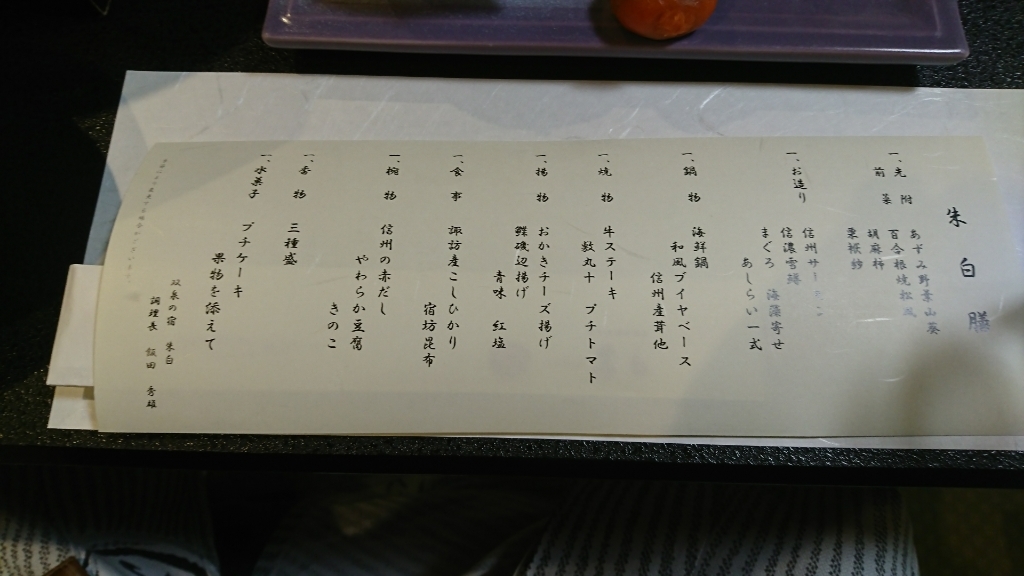 朱白膳
一、先附 あずみ野葉山葵
前菜 百合根焼松風
胡麻柿
栗
一、お造り 信州サーモン
信濃雪鱒 海藻寄せ
まぐろ あしらい一式
一、鍋物 海鮮鍋
和風ブイヤベース
信州産茸他
一、焼物 牛ステーキ
敷丸十 プチトマト
一、揚物 おかきチーズ揚げ
鱈磯辺揚げ
青味 紅塩
一、食事 諏訪産こしひかり
宿坊昆布
一、椀物 信州の赤だし
やわらか豆腐
きのこ
一、香物 三種盛
一、水菓子 プチケーキ
果物を添えて
双泉の宿 朱白
調理長 飯田 秀雄